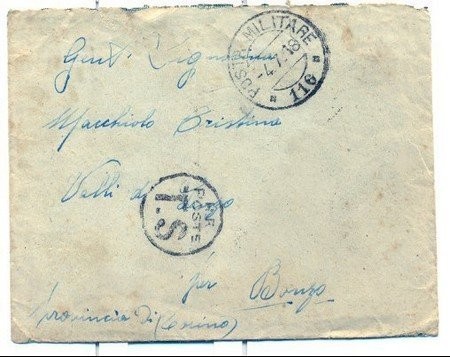 Gent. Signorina
POSTA MILITARE
-4.7.18
116
Macchiolo Cristina
Valli di
POSTE
T.S
per Bonzo
provincia di (Torino)